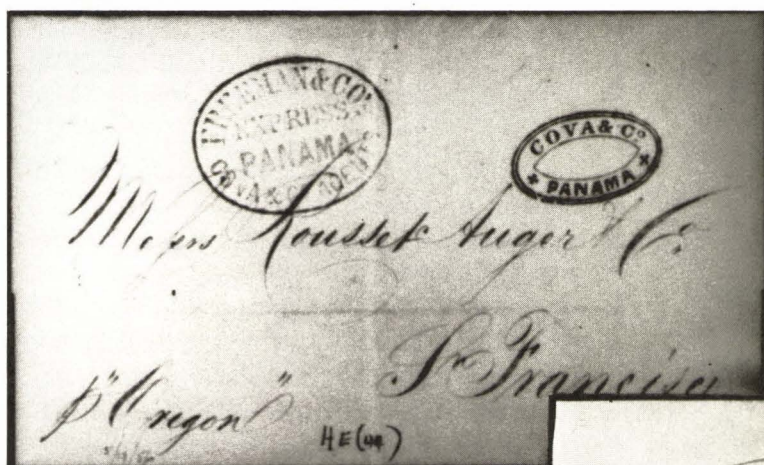 FREEMAN & CO'S
EXPRESS
PANAMA
COVA & CO. AGENTS
COVA & Co.
PANAMA
Messrs Rousset Auger & Co.
Sn Francisco
p "Oregon"
HE